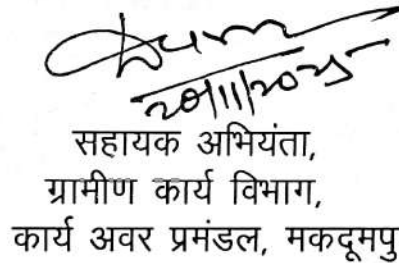 20/11/2025
सहायक अभियंता,
ग्रामीण कार्य विभाग,
कार्य अवर प्रमंडल, मकदूमपु